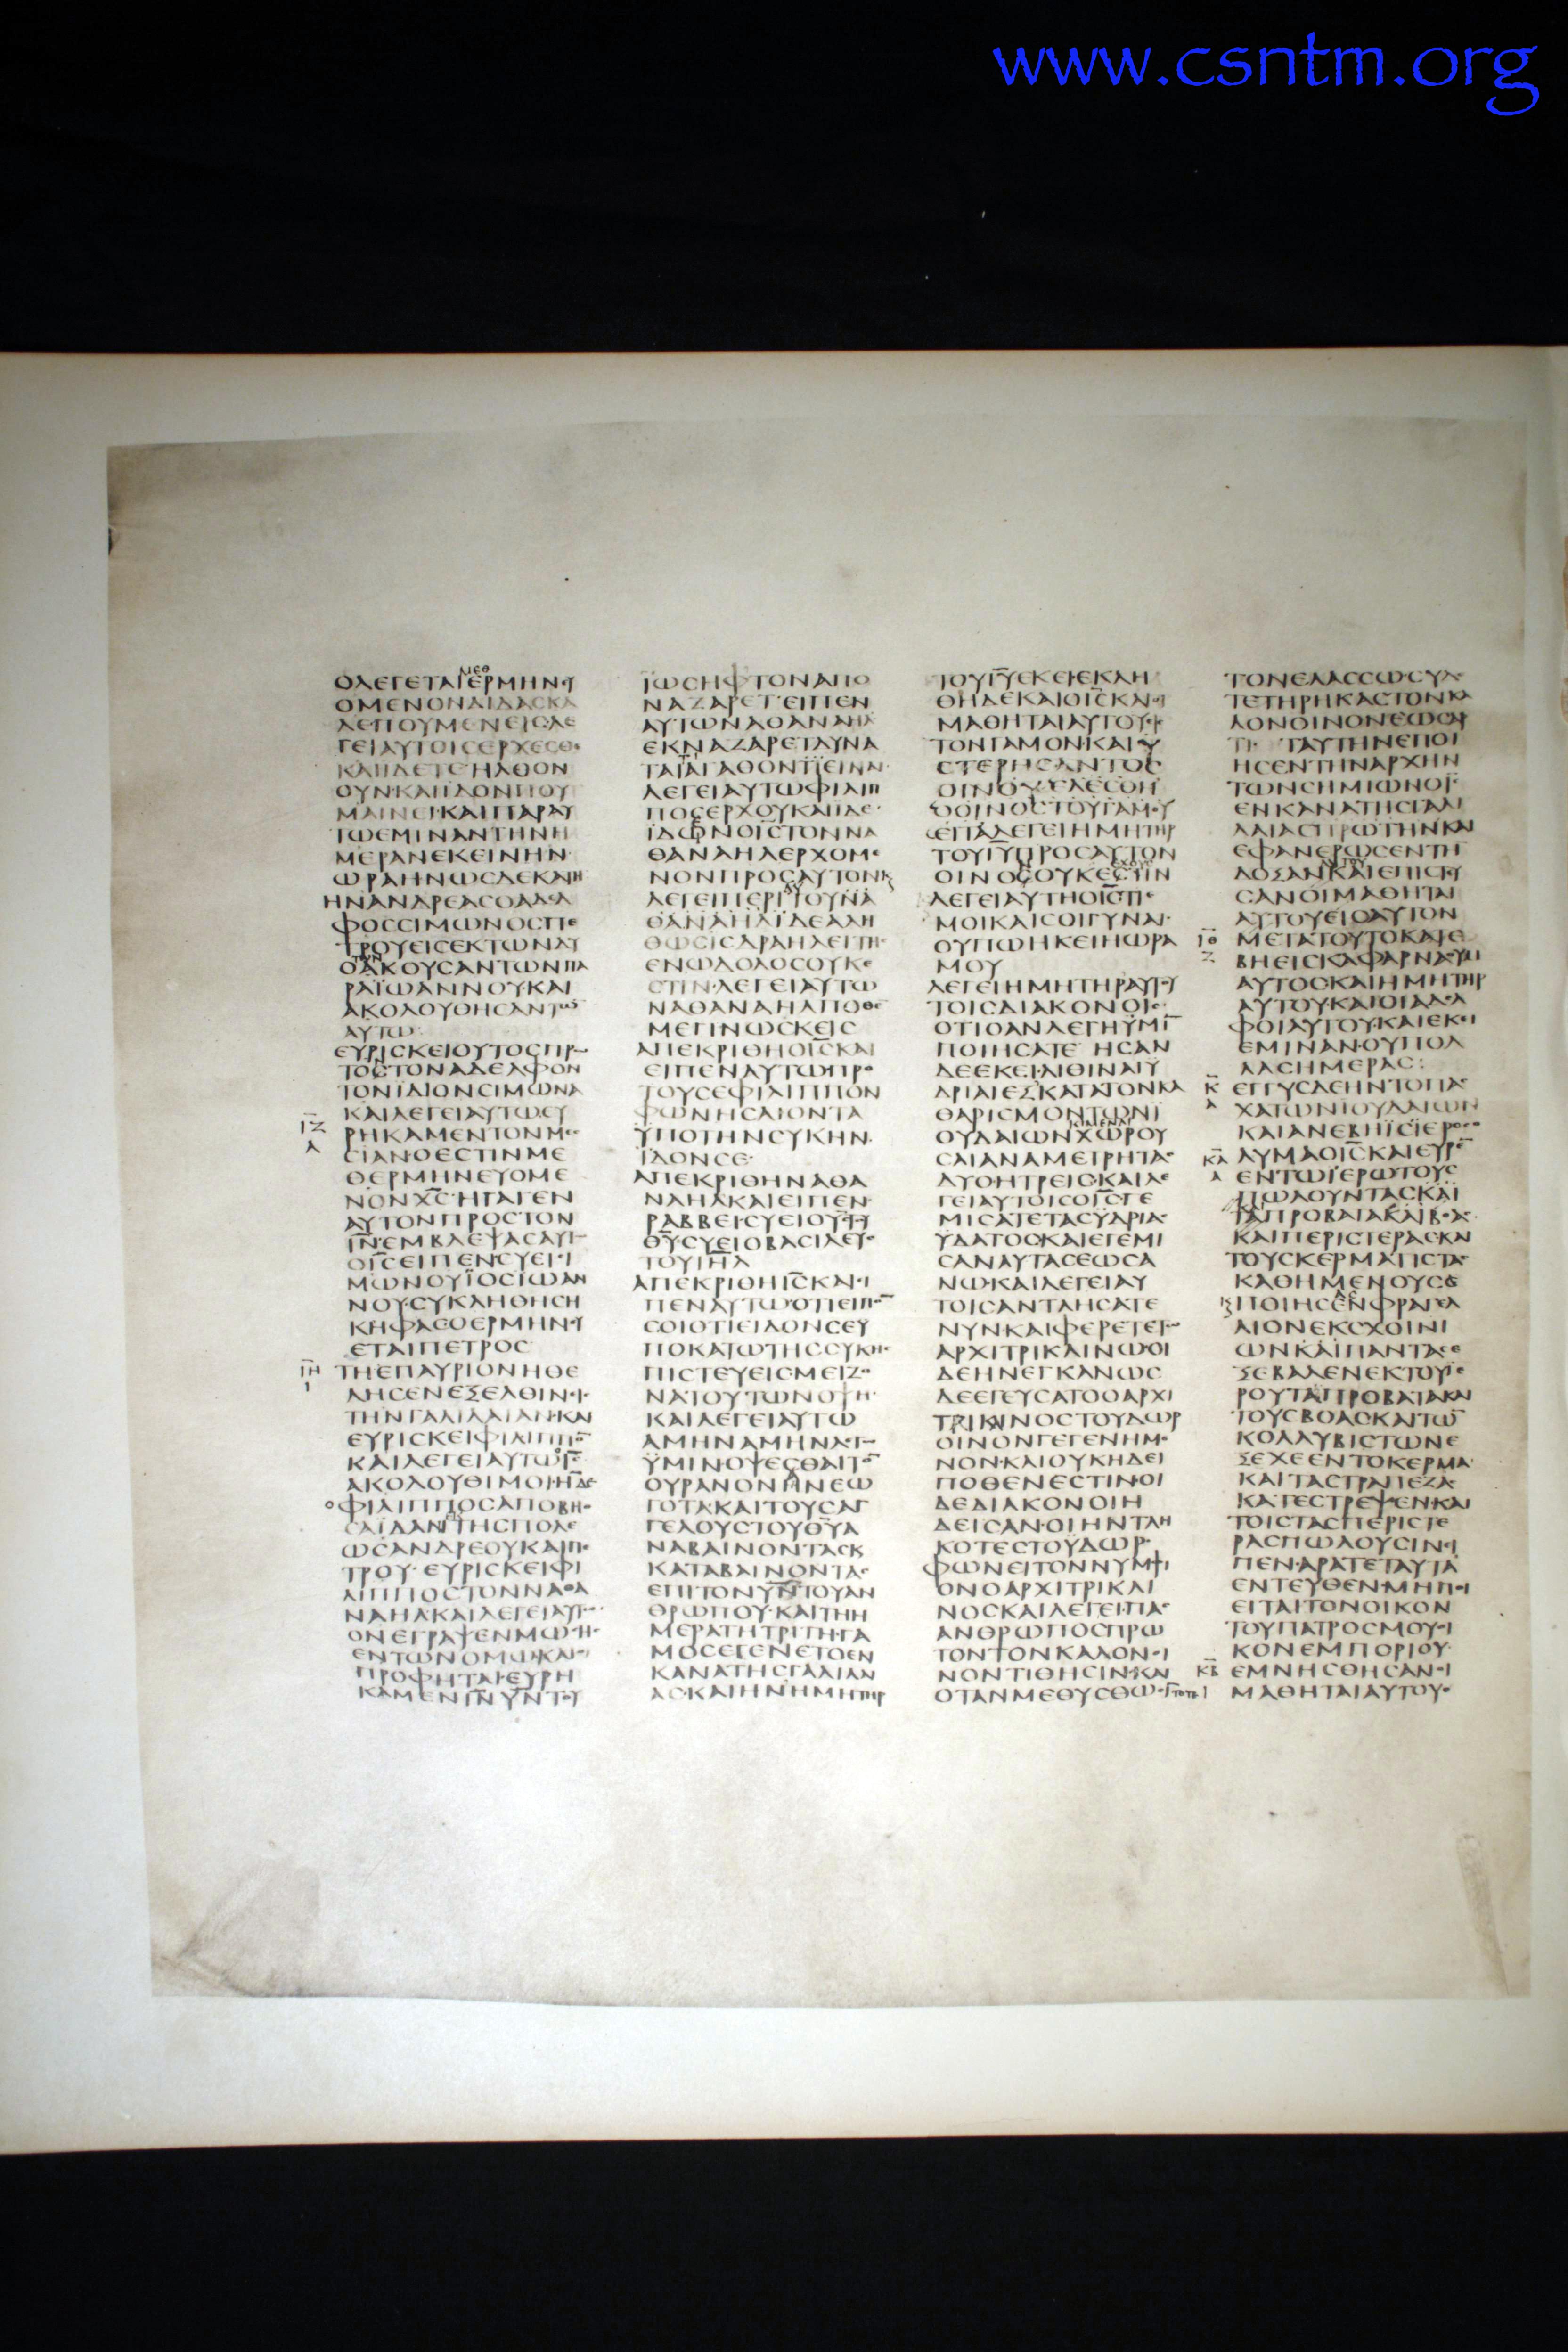 www.csntm.org
ΟΛΕΓΕΤΑΙΕΡΜΗΝΕΥ
ΟΜΕΝΟΝΔΙΔΑϹΚΑ
ΛΕΠΟΥΜΕΝΕΙϹΛΕ
ΓΕΙΑΥΤΟΙϹΕΡΧΕϹΘΕ
ΚΑΙΙΔΕΤΕΗΛΘΟΝ
ΟΥΝΚΑΙΙΔΟΝΠΟΥ
ΜΑΙΝΕΙ·ΚΑΙΠΑΡΑΥ
ΤΩΕΜΙΝΑΝΤΗΝΗ
ΜΕΡΑΝΕΚΕΙΝΗΝ
ΩΡΑΗΝΩϹΔΕΚΑΤΗ
ΗΝΑΝΔΡΕΑϹΟΑΔΕΛ
ΦΟϹϹΙΜΩΝΟϹΠΕ
ΤΡΟΥΕΙϹΕΚΤΩΝΔΥ
ΟΑΚΟΥϹΑΝΤΩΝΠΑ
ΡΑΪΩΑΝΝΟΥΚΑΙ
ΑΚΟΛΟΥΘΗϹΑΝΤΩΝ
ΑΥΤΩ·
ΕΥΡΙϹΚΕΙΟΥΤΟϹΠΡΩ
ΤΟϹΤΟΝΑΔΕΛΦΟΝ
ΤΟΝΪΔΙΟΝϹΙΜΩΝΑ
ΚΑΙΛΕΓΕΙΑΥΤΩΕΥ
ΡΗΚΑΜΕΝΤΟΝΜΕϹ
ϹΙΑΝ·ΟΕϹΤΙΝΜΕ
ΘΕΡΜΗΝΕΥΟΜΕ
ΝΟΝΧ̅Ϲ̅·ΗΓΑΓΕΝ
ΑΥΤΟΝΠΡΟϹΤΟΝ
Ι̅Ν̅·ΕΜΒΛΕΨΑϹΑΥΤΩ
ΟΙ̅Ϲ̅ΕΙΠΕΝϹΥΕΙϹΙ
ΜΩΝΟΥΪΟϹΙΩΑΝ
ΝΟΥ·ϹΥΚΛΗΘΗϹΗ
ΚΗΦΑϹΟΕΡΜΗΝΕΥ
ΕΤΑΙΠΕΤΡΟϹ
ΤΗΕΠΑΥΡΙΟΝΗΘΕ
ΛΗϹΕΝΕΞΕΛΘΙΝΕΙϹ
ΤΗΝΓΑΛΙΛΑΙΑΝ·ΚΑΙ
ΕΥΡΙϹΚΕΙΦΙΛΙΠΠΟΝ
ΚΑΙΛΕΓΕΙΑΥΤΩΟΙ̅Ϲ̅
ΑΚΟΛΟΥΘΙΜΟΙ·ΗΝΔΕ
ΟΦΙΛΙΠΠΟϹΑΠΟΒΗΘ
ϹΑΪΔΑΝΤΗϹΠΟΛΕ
ΩϹΑΝΔΡΕΟΥΚΑΙΠΕ
ΤΡΟΥ·ΕΥΡΙϹΚΕΙΦΙ
ΛΙΠΠΟϹΤΟΝΝΑΘΑ
ΝΑΗΛ·ΚΑΙΛΕΓΕΙΑΥΤΩ
ΟΝΕΓΡΑΨΕΝΜΩΫϹΗϹ
ΕΝΤΩΝΟΜΩ·ΚΑΙΟΙ
ΠΡΟΦΗΤΑΙ·ΕΥΡΗ
ΚΑΜΕΝΙ̅Ν̅Υ̅Ν̅ΤΟΥ
ΪΩϹΗΦΤΟΝΑΠΟ
ΝΑΖΑΡΕΤ·ΕΙΠΕΝ
ΑΥΤΩΝΑΘΑΝΑΗΛ
ΕΚΝΑΖΑΡΕΤΔΥΝΑ
ΤΑΙΑΓΑΘΟΝΤΙΕΙΝΑΙ
ΛΕΓΕΙΑΥΤΩΦΙΛΙΠ
ΠΟϹΕΡΧΟΥΚΑΙΪΔΕ·
ΪΔΩΝΟΙ̅Ϲ̅ΤΟΝΝΑ
ΘΑΝΑΗΛΕΡΧΟΜΕ
ΝΟΝΠΡΟϹΑΥΤΟΝΚ
ΛΕΓΕΙΠΕΡΙΤΟΥΝΑ
ΘΑΝΑΗΛΪΔΕΑΛΗ
ΘΩϹΙϹΔΡΑΗΛΕΙΤΗϹ
ΕΝΩΔΟΛΟϹΟΥΚΕ
ϹΤΙΝ·ΛΕΓΕΙΑΥΤΩ
ΝΑΘΑΝΑΗΛΠΟΘΕ
ΜΕΓΙΝΩϹΚΕΙϹ
ΑΠΕΚΡΙΘΗΟΙ̅Ϲ̅ΚΑΙ
ΕΙΠΕΝΑΥΤΩΠΡΟ
ΤΟΥϹΕΦΙΛΙΠΠΟΝ
ΦΩΝΗϹΑΙΟΝΤΑ
ΫΠΟΤΗΝϹΥΚΗΝ·
ΪΔΟΝϹΕ·
ΑΠΕΚΡΙΘΗΝΑΘΑ
ΝΑΗΛΚΑΙΕΙΠΕΝ
ΡΑΒΒΕΙ·ϹΥΕΙΟΥ̅Ϲ̅ΤΟΥ
Θ̅Υ̅ϹΥΕΙΟΒΑϹΙΛΕΥϹ
ΤΟΥΙ̅Η̅Λ̅
ΑΠΕΚΡΙΘΗΙ̅Ϲ̅ΚΑΙΕΙ
ΠΕΝΑΥΤΩ·ΟΤΙΕΙΠΟΝ
ϹΟΙΟΤΙΕΙΔΟΝϹΕΥ
ΠΟΚΑΤΩΤΗϹϹΥΚΗϹ
ΠΙϹΤΕΥΕΙϹ·ΜΕΙΖΟ
ΝΑΤΟΥΤΩΝΟΨΗ·
ΚΑΙΛΕΓΕΙΑΥΤΩ
ΑΜΗΝΑΜΗΝΛΕΓΩ
ΫΜΙΝ·ΟΨΕϹΘΑΙΤΟΝ
ΟΥΡΑΝΟΝΗΝΕΩ
ΓΟΤΑ·ΚΑΙΤΟΥϹΑΓ
ΓΕΛΟΥϹΤΟΥΘ̅Υ̅Α
ΝΑΒΑΙΝΟΝΤΑϹΚ
ΚΑΤΑΒΑΙΝΟΝΤΑϹ
ΕΠΙΤΟΝΥ̅Ν̅ΤΟΥΑΝ
ΘΡΩΠΟΥ·ΚΑΙΤΗΗ
ΜΕΡΑΤΗΤΡΙΤΗΓΑ
ΜΟϹΕΓΕΝΕΤΟΕΝ
ΚΑΝΑΤΗϹΓΑΛΙΛΑΙ
ΑϹ·ΚΑΙΗΝΗΜΗΤΗΡ
ΤΟΥΙ̅Υ̅ΕΚΕΙ·ΕΚΛΗ
ΘΗΔΕΚΑΙΟΙ̅Ϲ̅ΚΑΙΟΙ
ΜΑΘΗΤΑΙΑΥΤΟΥΕΙϹ
ΤΟΝΓΑΜΟΝ·ΚΑΙΥ
ϹΤΕΡΗϹΑΝΤΟϹ
ΟΙΝΟΥ
ΟΟΙΝΟϹΤΟΥΓΑΜΟΥ
ΕΙΤΑΛΕΓΕΙΗΜΗΤΗΡ
ΤΟΥΙ̅Υ̅ΠΡΟϹΑΥΤΟΝ
ΟΙΝΟϹΟΥΚΕϹΤΙΝ
ΛΕΓΕΙΑΥΤΗΟΙ̅Ϲ̅ΤΙΕ
ΜΟΙΚΑΙϹΟΙΓΥΝΑΙ·
ΟΥΠΩΗΚΕΙΗΩΡΑ
ΜΟΥ
ΛΕΓΕΙΗΜΗΤΗΡΑΥΤΟΥ
ΤΟΙϹΔΙΑΚΟΝΟΙϹ
ΟΤΙΟΑΝΛΕΓΗΫΜΙΝ
ΠΟΙΗϹΑΤΕ·ΗϹΑΝ
ΔΕΕΚΕΙΛΙΘΙΝΑΙΥ
ΔΡΙΑΙΕΞΚΑΤΑΤΟΝΚΑ
ΘΑΡΙϹΜΟΝΤΩΝΙ
ΟΥΔΑΙΩΝΧΩΡΟΥ
ϹΑΙΑΝΑΜΕΤΡΗΤΑϹ
ΔΥΟΗΤΡΕΙϹΚΑΙΛΕ
ΓΕΙΑΥΤΟΙϹΟΙ̅Ϲ̅ΓΕ
ΜΙϹΑΤΕΤΑϹΫΔΡΙΑϹ
ΫΔΑΤΟϹ·ΚΑΙΕΓΕΜΙ
ϹΑΝΑΥΤΑϹΕΩϹΑ
ΝΩ·ΚΑΙΛΕΓΕΙΑΥ
ΤΟΙϹΑΝΤΛΗϹΑΤΕ
ΝΥΝΚΑΙΦΕΡΕΤΕΤΩ
ΑΡΧΙΤΡΙΚΛΙΝΩ·ΟΙ
ΔΕΗΝΕΓΚΑΝΩϹ
ΔΕΕΓΕΥϹΑΤΟΟΑΡΧΙ
ΤΡΙΚΛΙΝΟϹΤΟΥΔΩΡ
ΟΙΝΟΝΓΕΓΕΝΗΜΕ
ΝΟΝ·ΚΑΙΟΥΚΗΔΕΙ
ΠΟΘΕΝΕϹΤΙΝ·ΟΙ
ΔΕΔΙΑΚΟΝΟΙΗ
ΔΕΙϹΑΝ·ΟΙΗΝΤΛΗ
ΚΟΤΕϹΤΟΫΔΩΡ·
ΦΩΝΕΙΤΟΝΝΥΜΦΙ
ΟΝΟΑΡΧΙΤΡΙΚΛΙ
ΝΟϹΚΑΙΛΕΓΕΙ·ΠΑϹ
ΑΝΘΡΩΠΟϹΠΡΩ
ΤΟΝΤΟΝΚΑΛΟΝΟΙ
ΝΟΝΤΙΘΗϹΙΝ·ΚΑΙ
ΟΤΑΝΜΕΘΥϹΘΩϹΙ
ΤΟΝΕΛΑϹϹΩϹΥΔΕ
ΤΕΤΗΡΗΚΑϹΤΟΝΚΑ
ΛΟΝΟΙΝΟΝΕΩϹΑΡ
ΤΙ·ΤΑΥΤΗΝΕΠΟΙ
ΗϹΕΝΤΗΝΑΡΧΗΝ
ΤΩΝϹΗΜΙΩΝΟΙ̅Ϲ̅
ΕΝΚΑΝΑΤΗϹΓΑΛΙ
ΛΑΙΑϹΠΡΩΤΗΝΚΑΙ
ΕΦΑΝΕΡΩϹΕΝΤΗ
ΔΟΞΑΝΚΑΙΕΠΙϹΤΕΥ
ϹΑΝΟΙΜΑΘΗΤΑΙ
ΑΥΤΟΥΕΙϹΑΥΤΟΝ
ΜΕΤΑΤΟΥΤΟΚΑΤΕ
ΒΗΕΙϹΚΑΦΑΡΝΑΟΥΜ
ΑΥΤΟϹΚΑΙΗΜΗΤΗΡ
ΑΥΤΟΥ·ΚΑΙΟΙΑΔΕΛ
ΦΟΙΑΥΤΟΥ·ΚΑΙΕΚΕΙ
ΕΜΙΝΑΝ·ΟΥΠΟΛ
ΛΑϹΗΜΕΡΑϹ:
ΕΓΓΥϹΔΕΗΝΤΟΠΑϹ
ΧΑΤΩΝΙΟΥΔΑΙΩΝ
ΚΑΙΑΝΕΒΗΪϹΪΕΡΟϹΟ
ΛΥΜΑΟΙ̅Ϲ̅ΚΑΙΕΥΡΕΝ
ΕΝΤΩΪΕΡΩΤΟΥϹ
ΠΩΛΟΥΝΤΑϹΚΑΙ
ΤΑΠΡΟΒΑΤΑΚΑΙΒΟΑϹ
ΚΑΙΠΕΡΙϹΤΕΡΑϹΚΑΙ
ΤΟΥϹΚΕΡΜΑΤΙϹΤΑϹ
ΚΑΘΗΜΕΝΟΥϹ
ΕΠΟΙΗϹΕΝΦΡΑΓΕΛ
ΛΙΟΝΕΚϹΧΟΙΝΙ
ΩΝΚΑΙΠΑΝΤΑϹΕ
ΞΕΒΑΛΕΝΕΚΤΟΥΪΕ
ΡΟΥΤΑΠΡΟΒΑΤΑΚΑΙ
ΤΟΥϹΒΟΑϹΚΑΙΤΩΝ
ΚΟΛΛΥΒΙϹΤΩΝΕ
ΞΕΧΕΕΝΤΟΚΕΡΜΑ·
ΚΑΙΤΑϹΤΡΑΠΕΖΑϹ
ΚΑΤΕϹΤΡΕΨΕΝ·ΚΑΙ
ΤΟΙϹΤΑϹΠΕΡΙϹΤΕ
ΡΑϹΠΩΛΟΥϹΙΝΕΙ
ΠΕΝ·ΑΡΑΤΕΤΑΥΤΑ
ΕΝΤΕΥΘΕΝ·ΜΗΠΟΙ
ΕΙΤΑΙΤΟΝΟΙΚΟΝ
ΤΟΥΠΑΤΡΟϹΜΟΥΟΙ
ΚΟΝΕΜΠΟΡΙΟΥ·
ΕΜΝΗϹΘΗϹΑΝΟΙ
ΜΑΘΗΤΑΙΑΥΤΟΥΟ